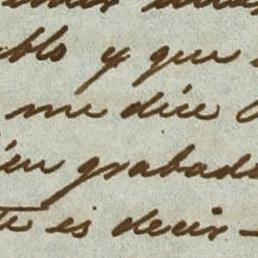 ablo y que
me dice
ien grabado
te es decir -